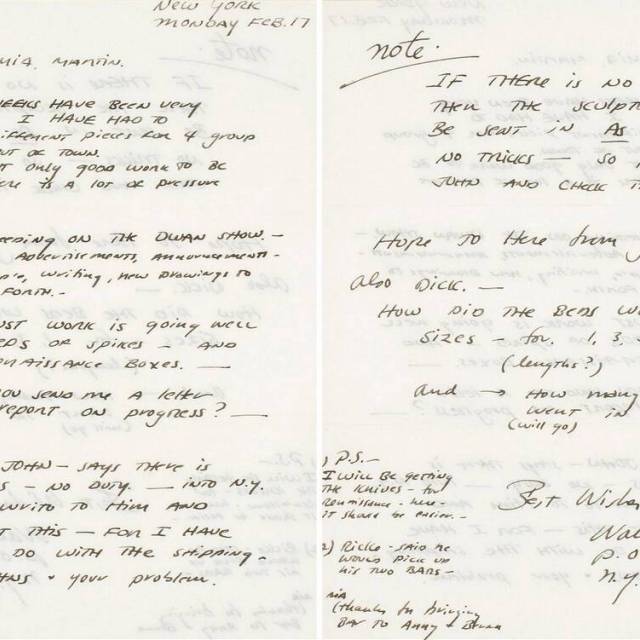 NEW YORK
MONDAY FEB. 17
MARTIN.
WEEKS HAVE BEEN VERY
I HAVE HAD TO
DIFFERENT PIECES FOR 4 group
OUT OF TOWN.
ONLY GOOD WORK TO BE
THERE IS A LOT OF PRESSURE
ON THE DWAN SHOW. —
ADVERTISEMENTS, ANNOUNCEMENTS -
WRITING, NEW DRAWINGS TO
FORTH. -
WORK IS GOING WELL
BEDS OF SPIKES — AND
BOXES. —
YOU SEND ME A letter
REPORT ON PROGRESS? —
JOHN — SAYS THERE IS
— NO DUTY. — INTO N.Y.
TO HIM AND
THIS — FOR I HAVE
DO WITH THE SHIPPING -
your problem.
note.
IF THERE IS NO
THEN THE SCULPT
BE SENT IN AS
NO TRICKS — SO
JOHN AND CHECK
HOPE TO HERE from
also DICK. —
HOW DID THE BEDS
SIZES — for. 1, 3,
(lengths?)
and → HOW many
WENT IN
(will go)
P.S. —
I WILL BE getting
THE KNIVES — for
Renaissance - here -
IT should be easier -
2) Ricke - SAID HE
WOULD PICK UP
HIS TWO BARS -
MIA
(thanks for bringing
BAR TO
Best Wishes
P.O
N.Y.